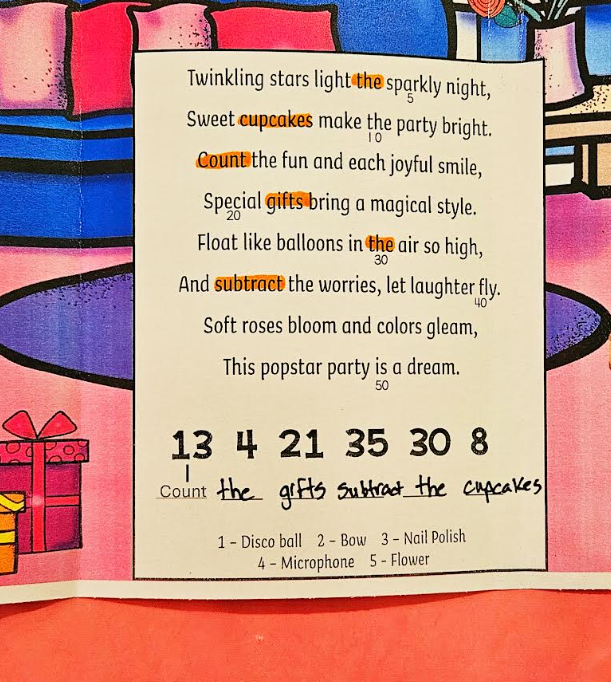 Twinkling stars light the sparkly night,
5
Sweet cupcakes make the party bright.
10
Count the fun and each joyful smile,
Special gifts bring a magical style.
20
Float like balloons in the air so high,
30
And subtract the worries, let laughter fly.
40
Soft roses bloom and colors gleam,
This popstar party is a dream.
50
13 4 21 35 30 8
Count the gifts subtract the cupcakes
1 – Disco ball 2 – Bow 3 – Nail Polish
4 – Microphone 5 - Flower